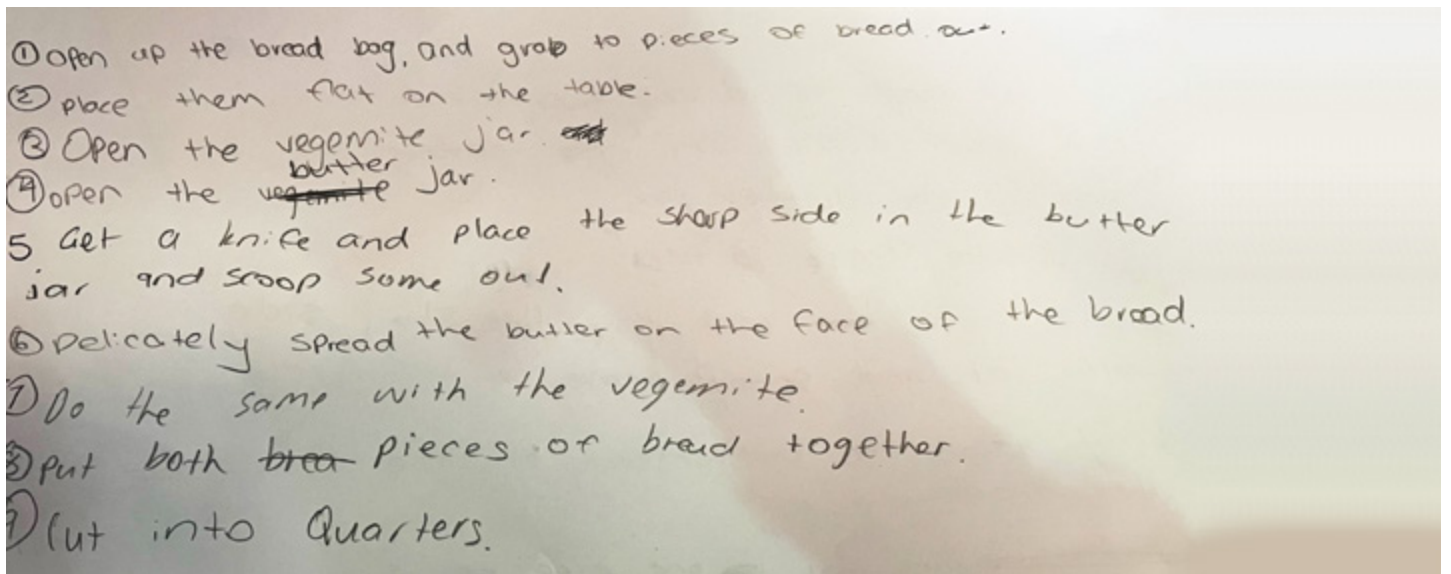 ① Open up the bread bag, and grab to pieces of bread out.
② place them flat on the table.
③ Open the vegemite jar.
④ open the butter jar.
5 Get a knife and place the sharp side in the butter
jar and scoop some out.
⑥ Delicately spread the butter on the face of the bread.
⑦ Do the same with the vegemite.
⑧ put both pieces of bread together.
⑨ Cut into Quarters.